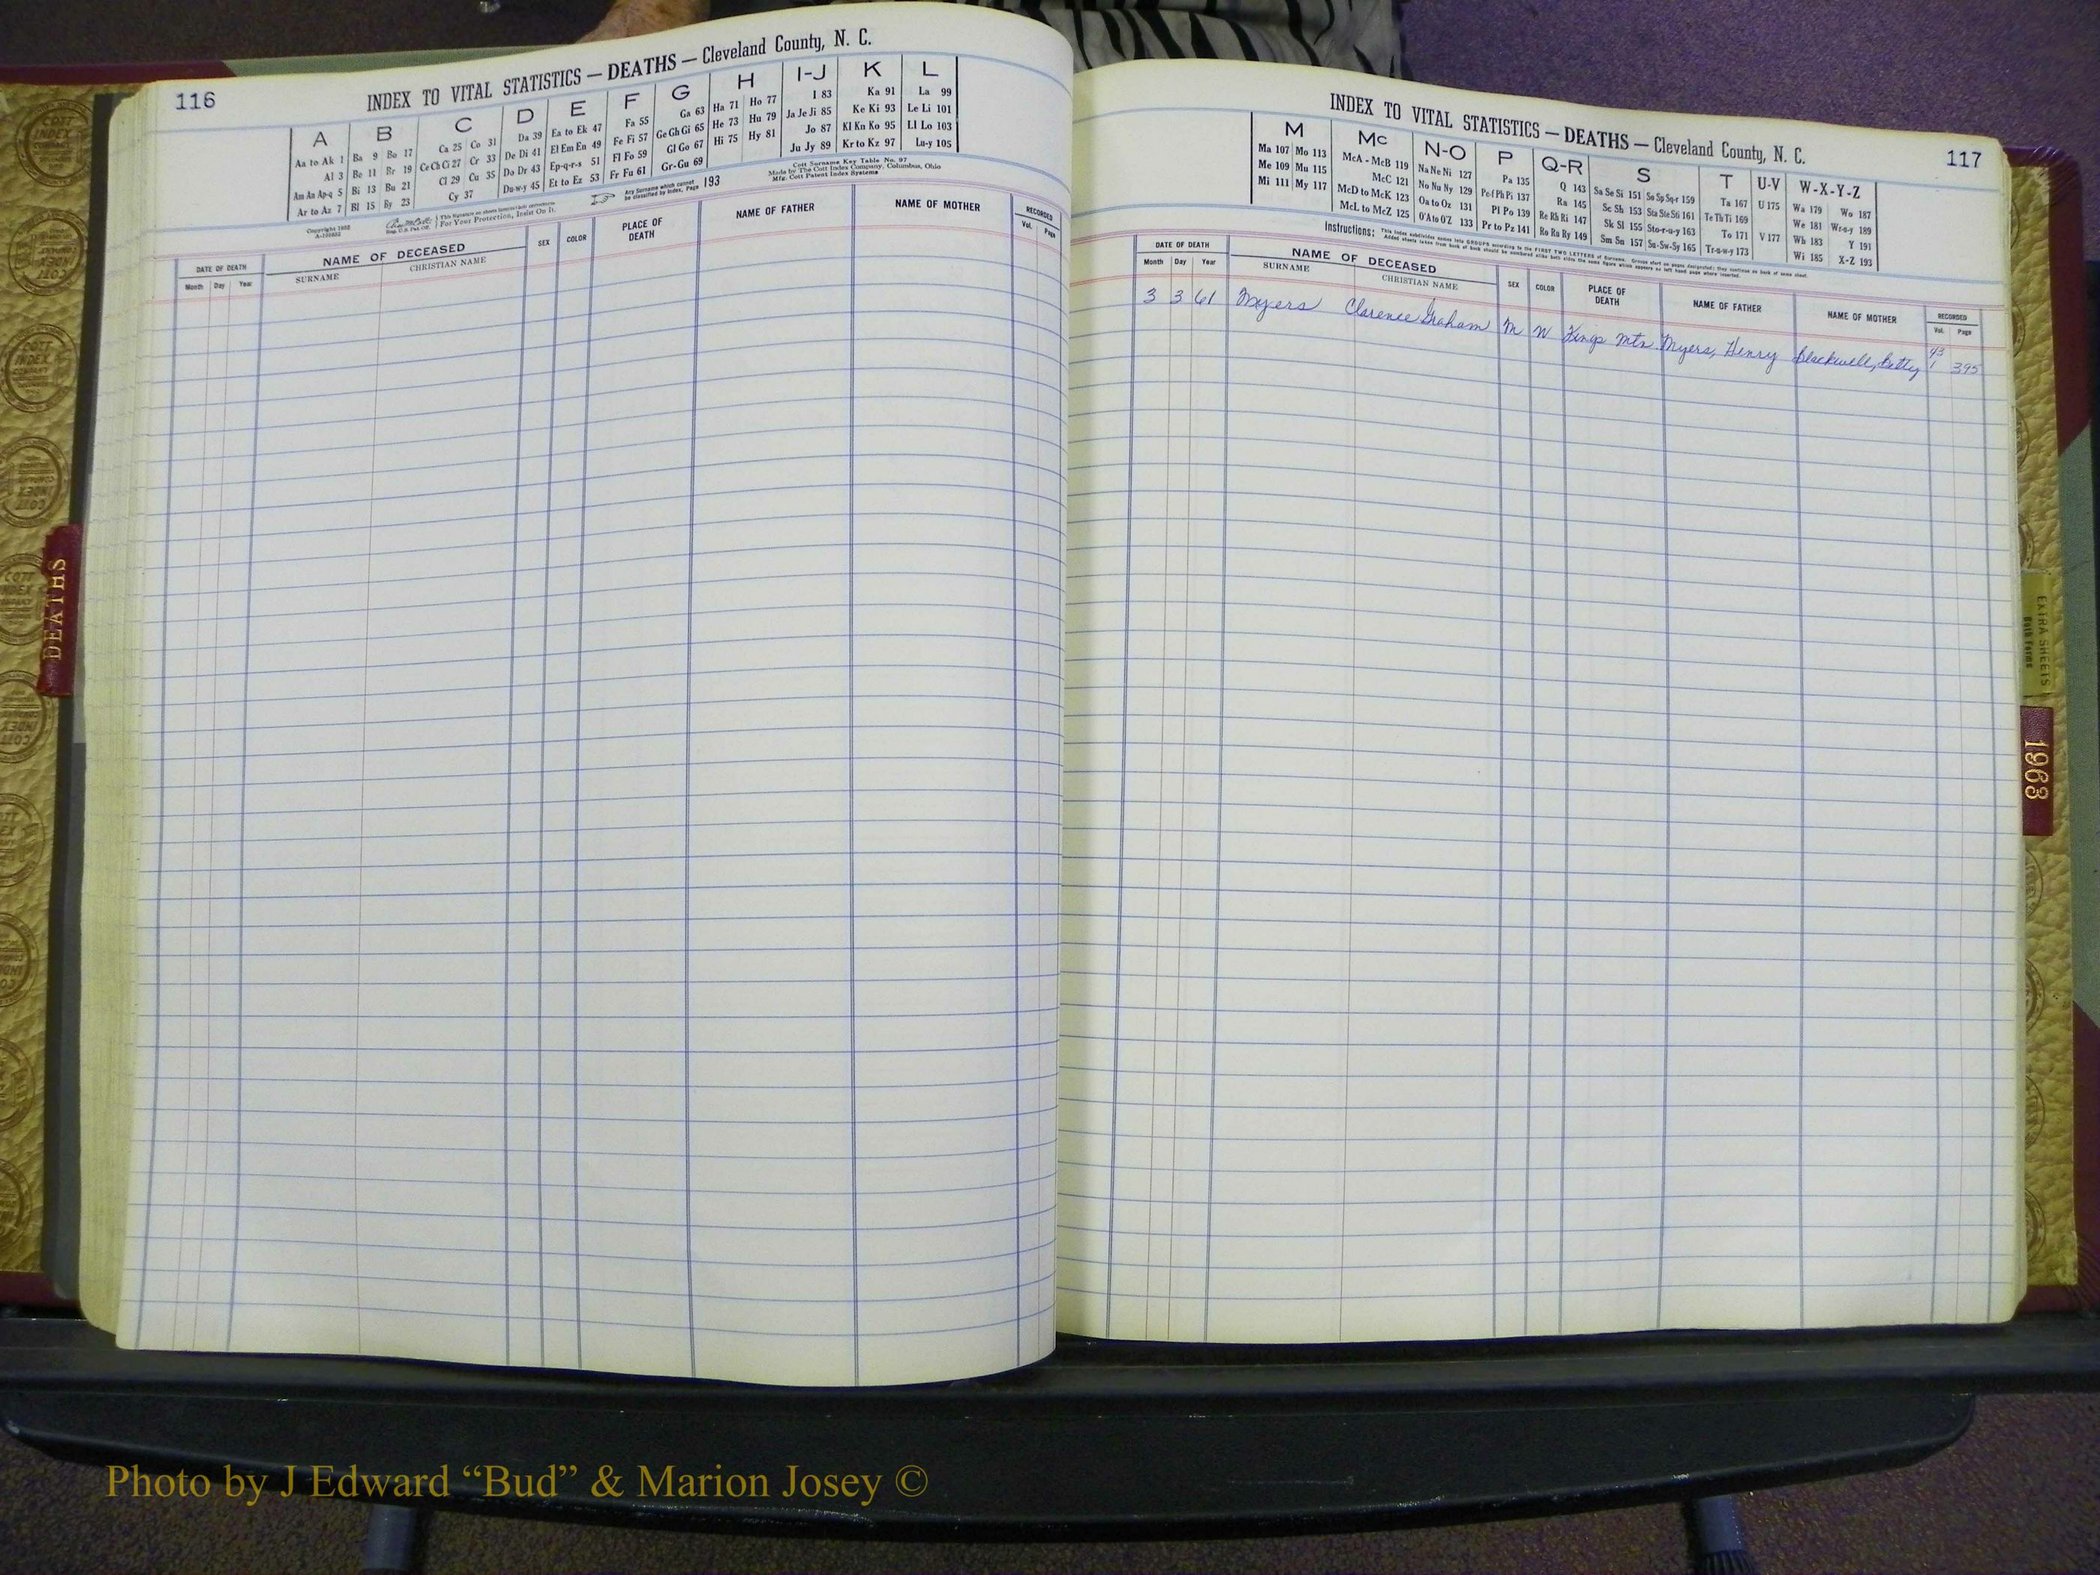 116
INDEX TO VITAL STATISTICS — DEATHS — Cleveland County, N. C.
A B C D E F G H I-J K L
Aa to Ak 1 Ba 9 Bo 17 Ca 25 Co 31 Da 39 Ea to Ek 47 Fa 55 Ga 63 Ha 71 Ho 77 I 83 Ka 91 La 99
Al 3 Be 11 Br 19 Ce Ch Ci 27 Cr 33 De Di 41 El Em En 49 Fe Fi 57 Ge Gh Gi 65 He 73 Hu 79 Ja Je Ji 85 Ke Ki 93 Le Li 101
Am An Ap-q 5 Bi 13 Bu 21 Cl 29 Cu 35 Do Dr 43 Ep-q-r-s 51 Fl Fo 59 Gl Go 67 Hi 75 Hy 81 Jo 87 Kl Kn Ko 95 Ll Lo 103
Ar to Az 7 Bl 15 By 23 Cy 37 Du-w-y 45 Et to Ez 53 Fr Fu 61 Gr-Gu 69 Ju Jy 89 Kr to Kz 97 Lu-y 105
Any Surname which cannot be classified by Index, Page 193
Cott Surname Key Table No. 97
Made by The Cott Index Company, Columbus, Ohio
Mfg. Cott Patent Index Systems
For Your Protection, Insist On It.
DATE OF DEATH NAME OF DECEASED SEX COLOR PLACE OF DEATH NAME OF FATHER NAME OF MOTHER RECORDED
Month Day Year SURNAME CHRISTIAN NAME Vol. Page
INDEX TO VITAL STATISTICS — DEATHS — Cleveland County, N. C.
117
M Mc N-O P Q-R S T U-V W-X-Y-Z
Ma 107 Mo 113 McA - McB 119 Na Ne Ni 127 Pa 135 Q 143 Sa Se Si 151 So Sp Sq-r 159 Ta 167 U 175 Wa 179 Wo 187
Me 109 Mu 115 McC 121 No Nu Ny 129 Pe-f Ph Pi 137 Ra 145 Sc Sh 153 Sta Ste Sti 161 Te Th Ti 169 We 181 Wr-u-y 189
Mi 111 My 117 McD to McK 123 Oa to Oz 131 Pl Po 139 Re Rh Ri 147 Sk Sl 155 Sto-r-u-y 163 To 171 V 177 Wh 183 Y 191
McL to McZ 125 O'A to O'Z 133 Pr to Pz 141 Ro Ru Ry 149 Sm Sn 157 Su-Sw-Sy 165 Tr-u-w-y 173 Wi 185 X-Z 193
Instructions:
DATE OF DEATH NAME OF DECEASED SEX COLOR PLACE OF DEATH NAME OF FATHER NAME OF MOTHER RECORDED
Month Day Year SURNAME CHRISTIAN NAME Vol. Page
3 3 61 Myers Clarence Graham M W Kings Mtn. Myers, Henry Blackwell, Betty 43 1 395
DEATHS
EXTRA SHEETS
Both Forms
1963
Photo by J Edward “Bud” & Marion Josey ©